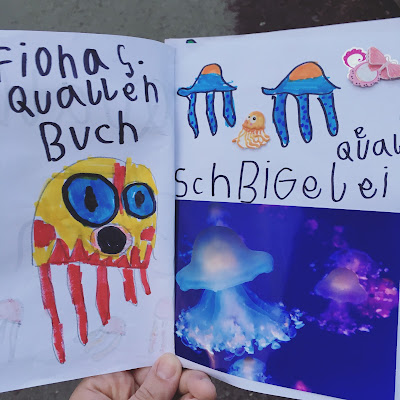 Fionas.
Quallen
Buch
e
Qual
SchBiGelei